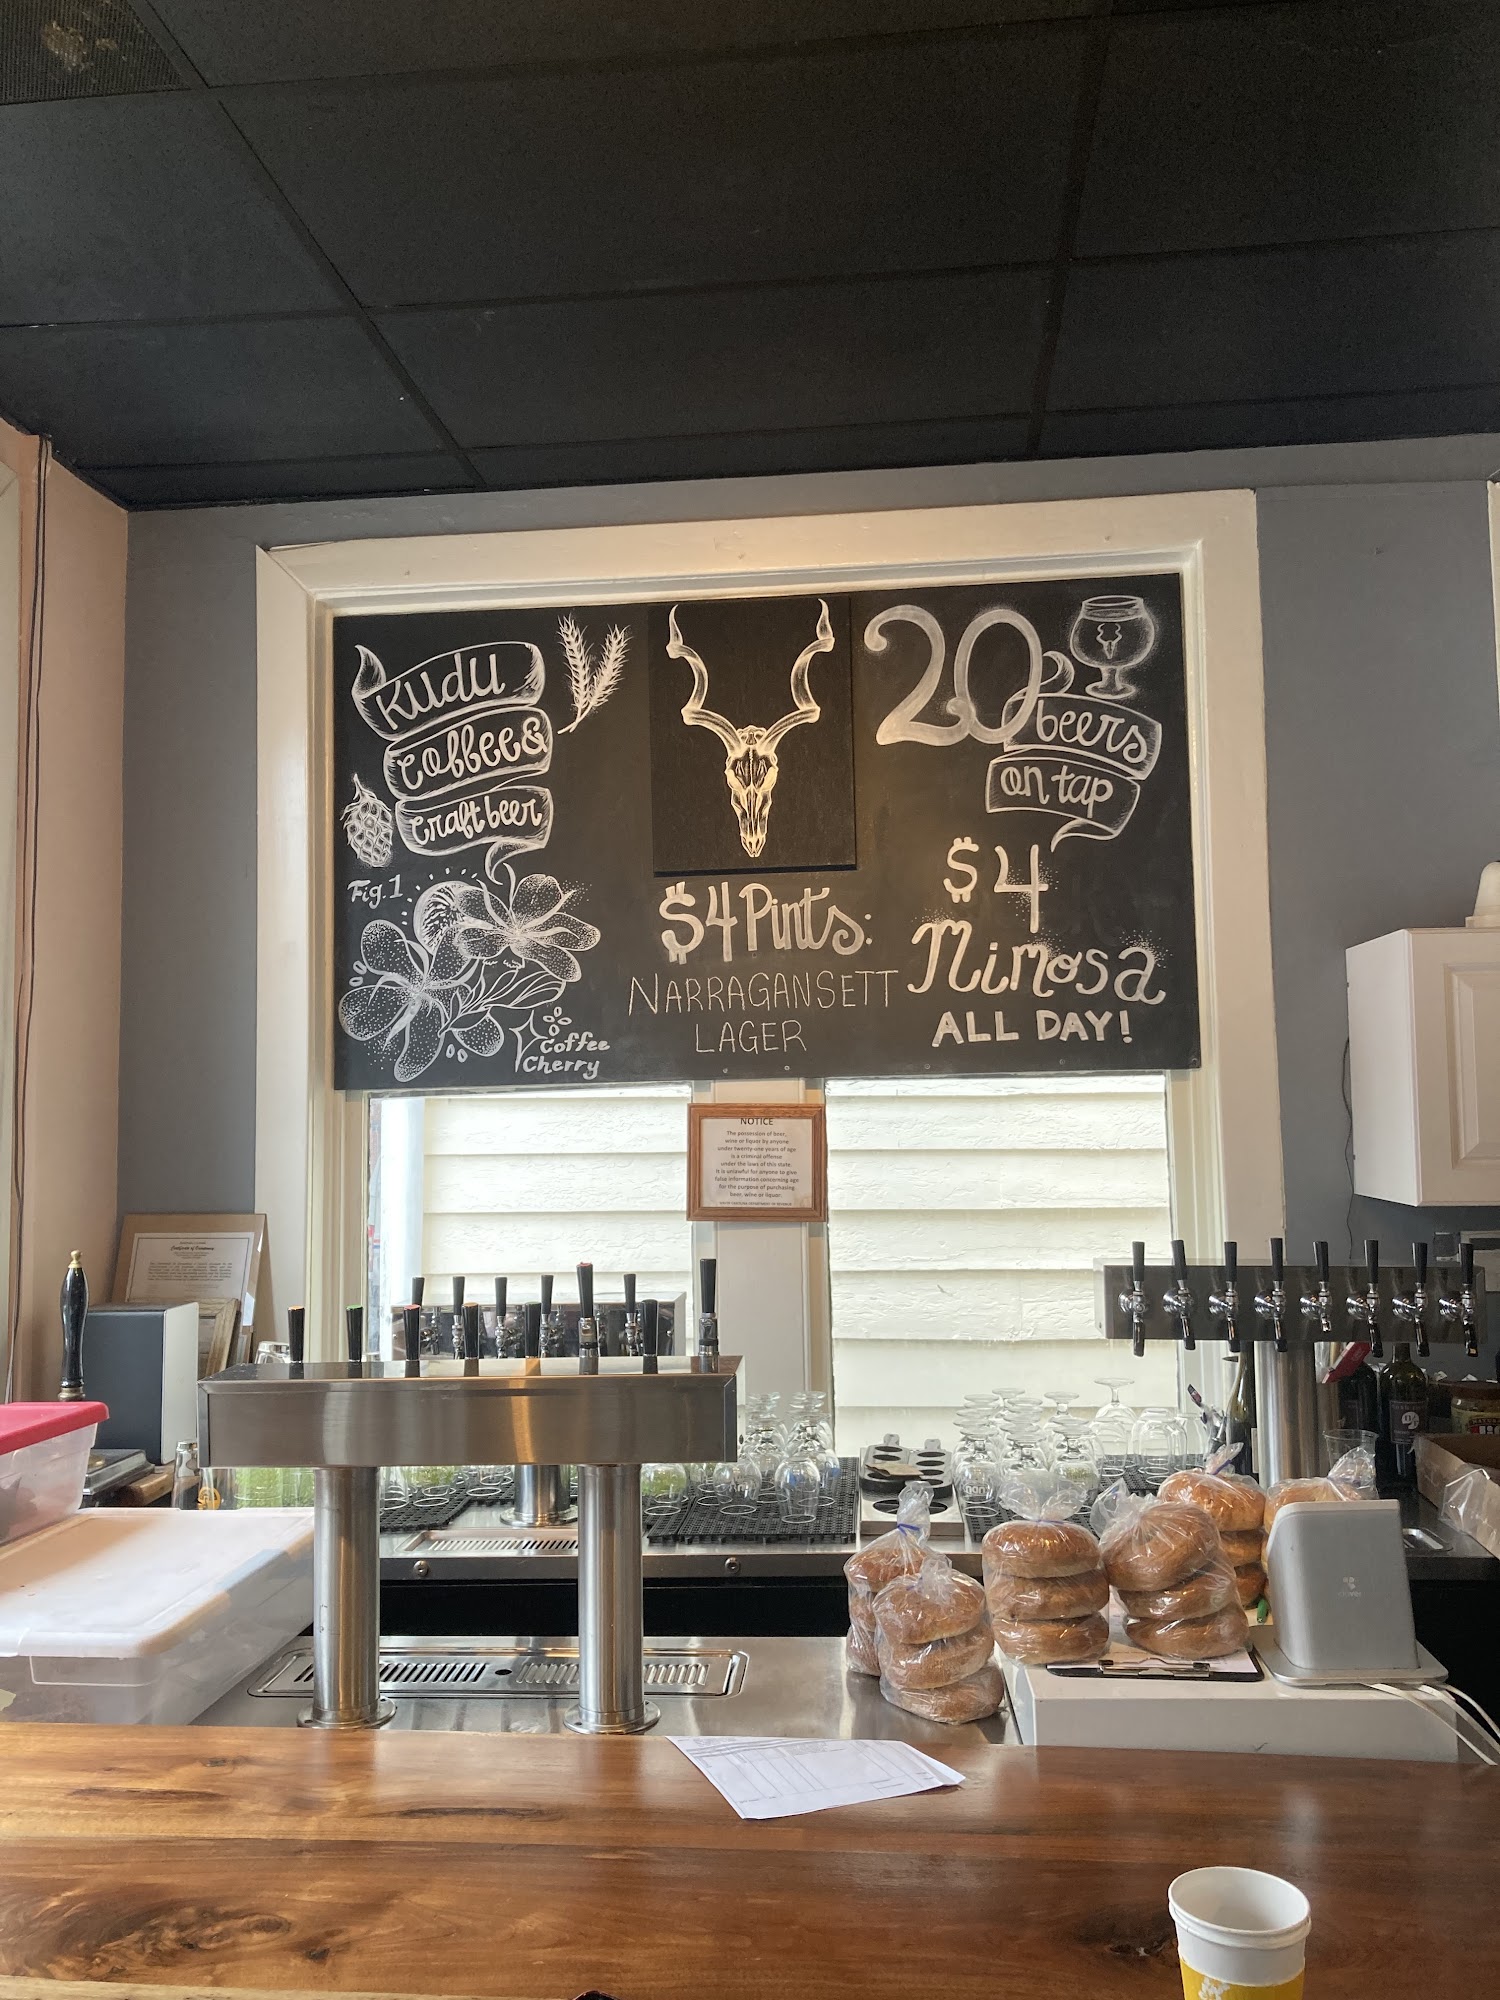 Kudu
coffee &
craft beer
Fig. 1
Coffee
Cherry
$4 Pints:
NARRAGANSETT
LAGER
20
beers
on tap
$4
Mimosa
ALL DAY!
NOTICE
The possession of beer,
wine or liquor by anyone
under twenty-one years of age
is a criminal offense
under the laws of this state.
It is unlawful for anyone to give
false information concerning age
for the purpose of purchasing
beer, wine or liquor.